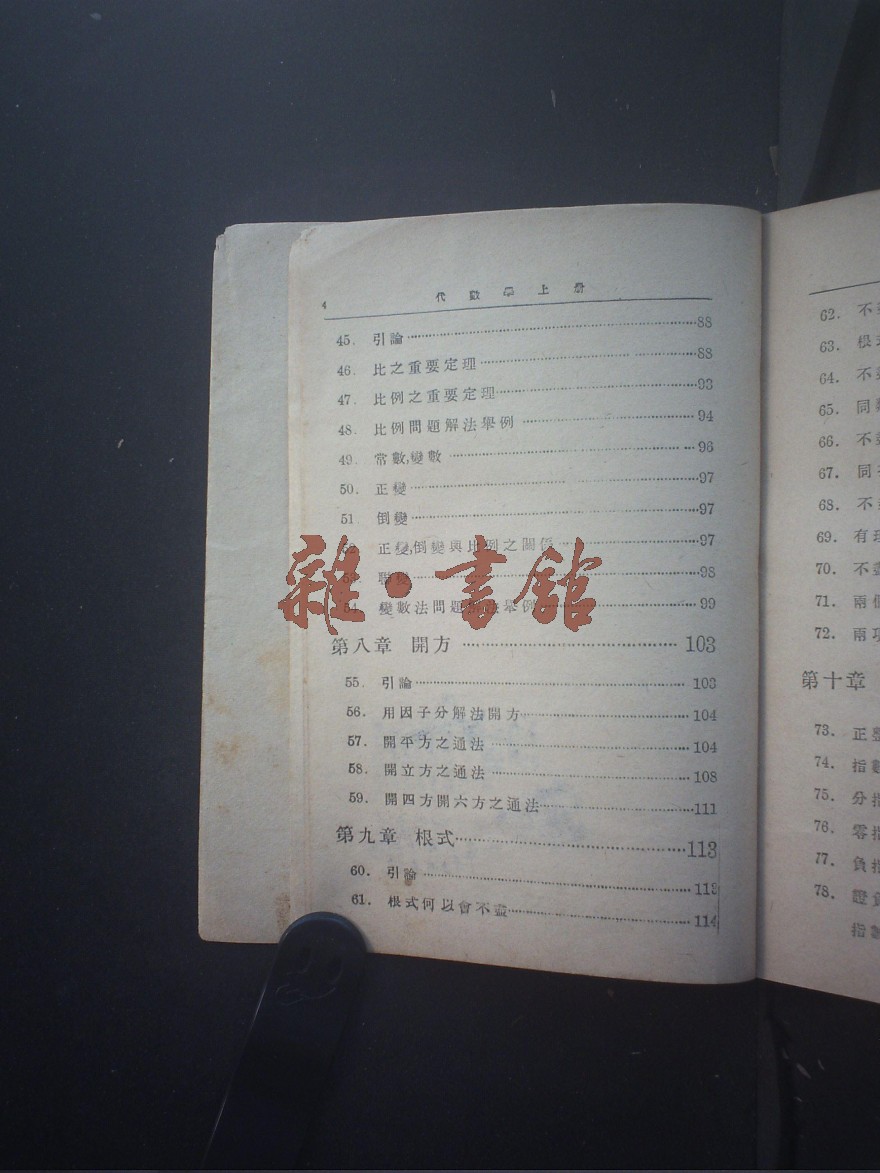 4 代數學上册
45. 引論 88
46. 比之重要定理 88
47. 比例之重要定理 93
48. 比例問題解法舉例 94
49. 常數,變數 96
50. 正變 97
51 倒變 97
52 正變,倒變與比例之關係 97
53 聯變 98
54. 變數法問題解法舉例 99
第八章 開方 103
55. 引論 103
56. 用因子分解法開方 104
57. 開平方之通法 104
58. 開立方之通法 108
59. 開四方開六方之通法 111
第九章 根式 113
60. 引論 113
61. 根式何以會不盡 114
雜·書館
62. 不
63. 根
64. 不
65. 同
66. 不
67. 同
68. 不
69. 有
70. 不盡
71. 兩個
72. 兩項
第十章
73. 正整
74. 指數
75. 分指
76. 零指
77. 負指
78. 證負
指